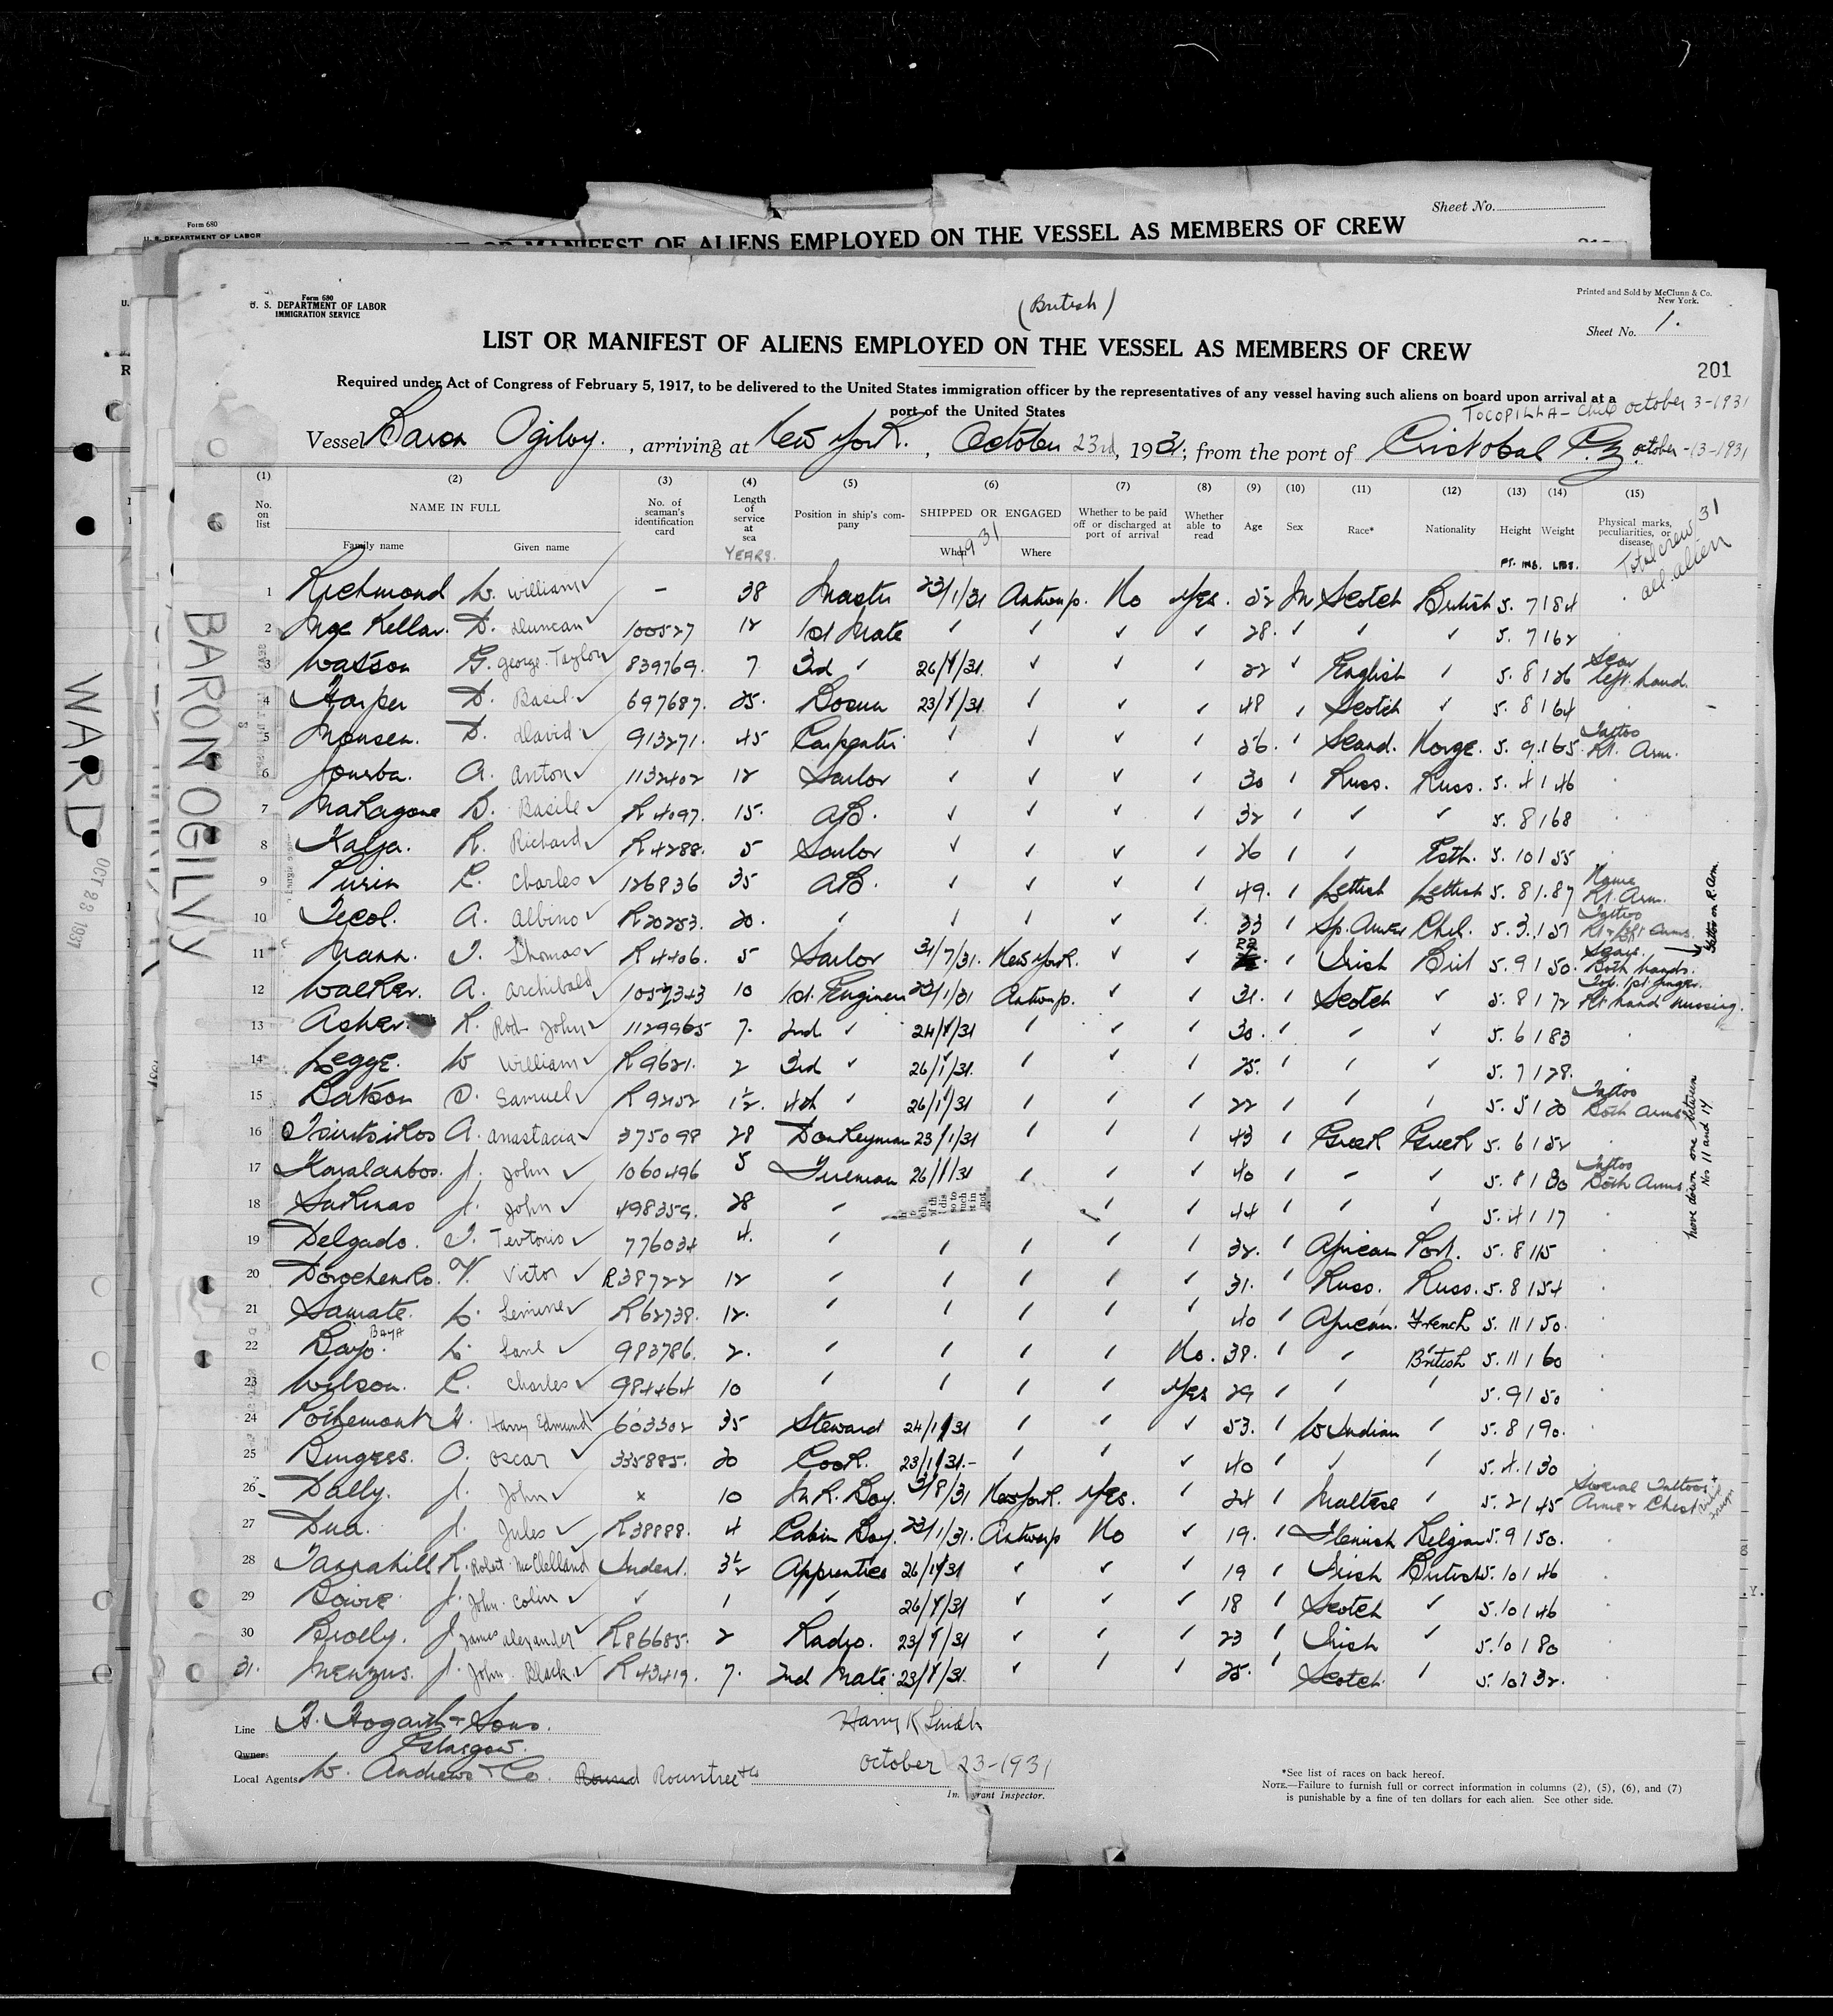 Sheet No.
Form 680
U. S. DEPARTMENT OF LABOR
OR MANIFEST OF ALIENS EMPLOYED ON THE VESSEL AS MEMBERS OF CREW
Form 680
U. S. DEPARTMENT OF LABOR
IMMIGRATION SERVICE
(British)
Printed and Sold by McClunn & Co.
New York.
Sheet No. 1.
LIST OR MANIFEST OF ALIENS EMPLOYED ON THE VESSEL AS MEMBERS OF CREW
201
Required under Act of Congress of February 5, 1917, to be delivered to the United States immigration officer by the representatives of any vessel having such aliens on board upon arrival at a
port of the United States
TOCOPILLA - Chile october 3-1931
Vessel Baron Ogilvy. , arriving at New York. , October 23rd, 1931; from the port of Cristobal C.Z. october-13-1931
(1) (2) (3) (4) (5) (6) (7) (8) (9) (10) (11) (12) (13) (14) (15)
No. on list NAME IN FULL No. of seaman's identification card Length of service at sea Position in ship's company SHIPPED OR ENGAGED Whether to be paid off or discharged at port of arrival Whether able to read Age Sex Race* Nationality Height Weight Physical marks, peculiarities, or disease
Family name Given name YEARS. When 1931 Where FT. INS. LBS.
Total crew 31
all alien
1 Richmond W. William ✓ - 38 Master 23/1/31 Antwerp. No Yes. 52 M Scotch British 5. 7 184
2 Mac Kellar. D. Duncan ✓ 100527 12 1st Mate ✓ ✓ ✓ ✓ 28. ✓ ✓ ✓ 5. 7 162
3 Watson G. George Taylor ✓ 839769. 7 3rd ✓ 26/1/31. ✓ ✓ ✓ 22 ✓ English ✓ 5. 8 126 Scar left hand.
4 Harper D. Basil ✓ 697687. 25. Bosun 23/1/31 ✓ ✓ ✓ 48 ✓ Scotch ✓ 5. 8 164
5 Monsen. D. David ✓ 913271. 45 Carpenter ✓ ✓ ✓ ✓ 56. ✓ Scand. Norge. 5. 9. 165 Tattoo Rt. Arm.
6 Jourba. A. Anton ✓ 1132402 12 Sailor ✓ ✓ ✓ ✓ 30 ✓ Russ. Russ. 5. 4 146
7 Makagone B. Basile ✓ R 4097. 15. AB. ✓ ✓ ✓ ✓ 32 ✓ ✓ ✓ 5. 8 168
8 Kalja. R. Richard ✓ R 4288. 5 Sailor ✓ ✓ ✓ ✓ 26 ✓ ✓ Esth. 5. 10 155
9 Purin C. Charles ✓ 126836 35 AB. ✓ ✓ ✓ ✓ 49. ✓ Lettish Lettish 5. 8 1.87 Name Rt. Arm.
10 Tecol. A. Albino ✓ R20253. 20. ✓ ✓ ✓ ✓ ✓ 33 ✓ Sp. Amer Chil. 5. 3. 151 Tattoo Rt & Lft Arms.
11 Mann. T. Thomas ✓ R 4406. 5 Sailor 31/7/31. New York. ✓ ✓ 22 ✓ Irish Brit 5. 9 150. Scars. Both hands.
12 Walker. A. Archibald 1057343 10 1st. Engineer 23/1/31 Antwerp. ✓ ✓ 31. ✓ Scotch ✓ 5. 8 172 Top. 1st finger. Rt hand missing.
13 Asher R. Rod John ✓ 1129965 7. 2nd ✓ 24/1/31 ✓ ✓ ✓ 30. ✓ ✓ ✓ 5. 6 183
14 Legge. W William ✓ R 9621. 2 3rd ✓ 26/1/31. ✓ ✓ ✓ 25. ✓ ✓ ✓ 5. 7 128.
15 Batson S. Samuel ✓ R 9252 1½. 4th ✓ 26/1/31 ✓ ✓ ✓ 22 ✓ ✓ ✓ 5. 5 120 Tattoo Both Arms
16 Tsintsikos A. Anastacia ✓ 375098 28 Donkeyman 23/1/31 ✓ ✓ ✓ 43 ✓ Greek Greek 5. 6 152
17 Karalanbos. J. John ✓ 1060496 5 Fireman 26/1/31 ✓ ✓ ✓ 40 ✓ ✓ ✓ 5. 8 180 Tattoo Both Arms
18 Sakinas J. John ✓ 498359. 28 ✓ ✓ ✓ 44 ✓ ✓ ✓ 5. 4 117
19 Delgado. T. Teutonio ✓ 776034 4. ✓ ✓ ✓ ✓ ✓ 32. ✓ African Port. 5. 8 115
20 Dorochenko. V. Victor ✓ R38722 12 ✓ ✓ ✓ ✓ ✓ 31. ✓ Russ. Russ. 5. 8 154
21 Samate. L. R62738. 12. ✓ ✓ ✓ ✓ ✓ 40 ✓ African. French 5. 11 150.
22 Bayo. BAYA L. ✓ 983786. 2. ✓ ✓ ✓ ✓ No. 38. ✓ ✓ British 5. 11 160
23 Wilson. C. Charles ✓ 984464 10 ✓ ✓ ✓ ✓ Yes 29 ✓ ✓ ✓ 5. 9 150
24 Pothemont H. Harry Edmund ✓ 603302 35 Steward 24/1/31 ✓ ✓ ✓ 53. ✓ W Indian ✓ 5. 8 190.
25 Burgess. O. Oscar ✓ 335885. 20 Cook. 23/1/31.- ✓ ✓ ✓ 40 ✓ ✓ ✓ 5. 4. 130
26 Dally. J. John ✓ x 10 M.R. Boy. 3/8/31 New York. Yes. ✓ 24 ✓ Maltese ✓ 5. 2 145 Several Tattoos Arms & Chest
27 Dua. J. Jules ✓ R38888. 4 Cabin Boy. 23/1/31. Antwerp No ✓ 19. ✓ Flemish Belgian 5. 9 150.
28 Tannahill R. Robert McClelland Indent. 3½ Apprentice 26/1/31 ✓ ✓ ✓ 19 ✓ Irish British 5. 10 146
29 Bowie J. John Colin ✓ ✓ 1 ✓ 26/1/31 ✓ ✓ ✓ 18 ✓ Scotch ✓ 5. 10 146
30 Brolly. J James Alexander ✓ R86685. 2 Radio. 23/1/31 ✓ ✓ ✓ 23 ✓ Irish ✓ 5. 10 180
31. Menzies. J. John Black ✓ R43419. 7. 2nd Mate 23/1/31. ✓ ✓ ✓ 25. ✓ Scotch ✓ 5. 10 132.
Tattoo on R. Arm.
have down one between
Nos 11 and 14
BARON OGILVY
WARD
OCT 23 1931
Line H. Hogarth & Sons.
Owners Glasgow.
Local Agents W. Andrews & Co. Round Rountree & Co
Harry K
October 23-1931
Immigrant Inspector.
*See list of races on back hereof.
NOTE.—Failure to furnish full or correct information in columns (2), (5), (6), and (7)
is punishable by a fine of ten dollars for each alien. See other side.